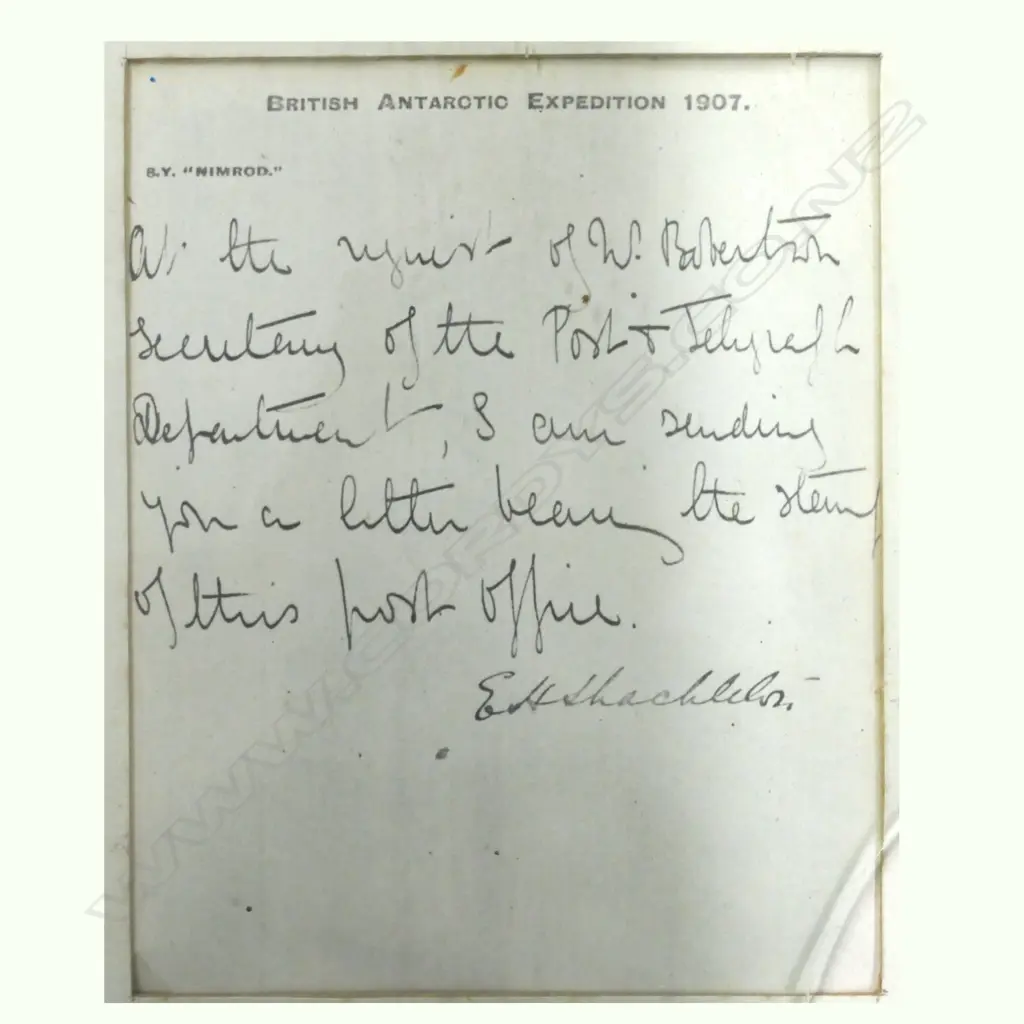 BRITISH ANTARCTIC EXPEDITION 1907.
S.Y. "NIMROD."
At the request of W. Robertson
Secretary of the Post & Telegraph
Department, I am sending
you a letter bearing the stamp
of this post office.
E H Shackleton
WWW.CORDYS.CO.NZ